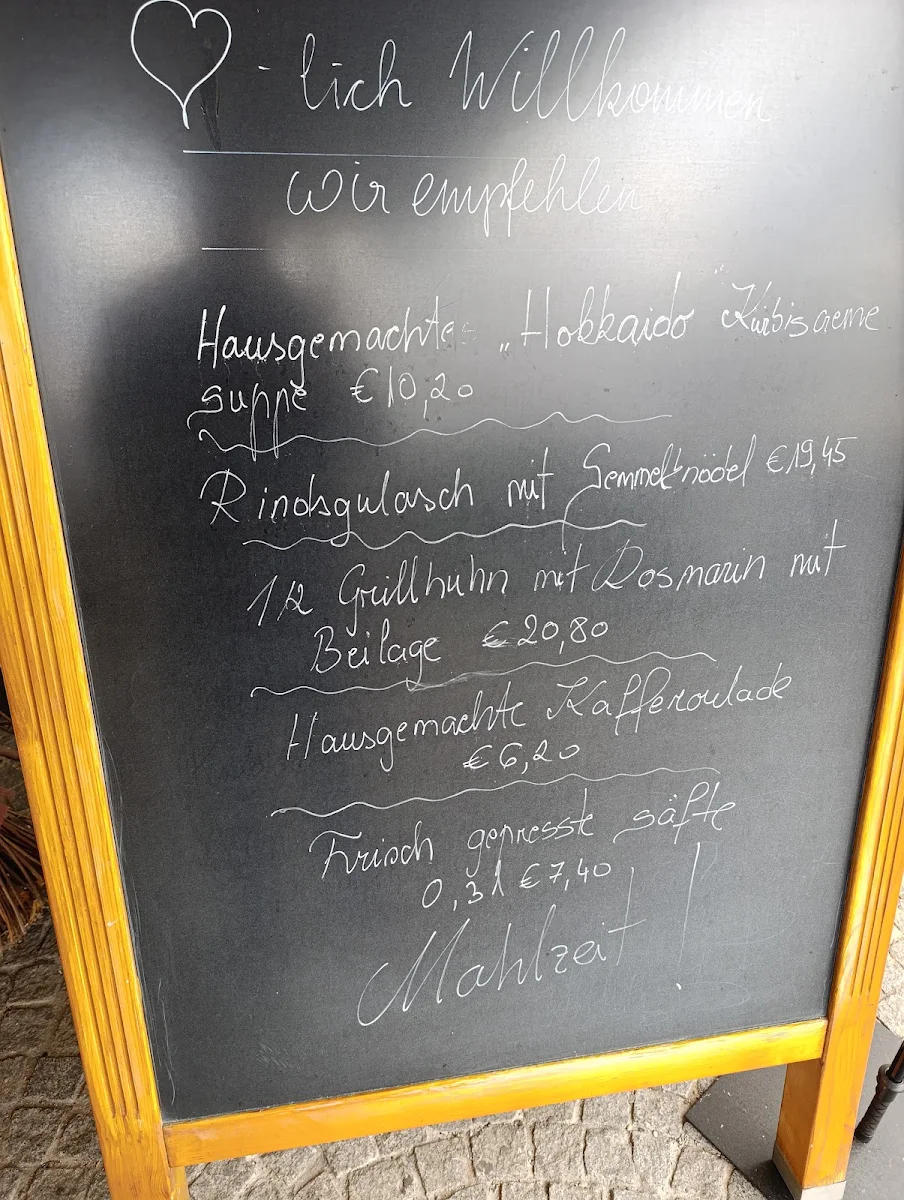 - lich Willkommen
Wir empfehlen
Hausgemachte „Hokkaido" Kürbiscreme
suppe €10,20
Rindsgulasch mit Semmelknödel €19,45
1/2 Grillhuhn mit Rosmarin mit
Beilage €20,80
Hausgemachte Kafferoulade
€6,20
Frisch gepresste säfte
0,3l €7,40
Mahlzeit!